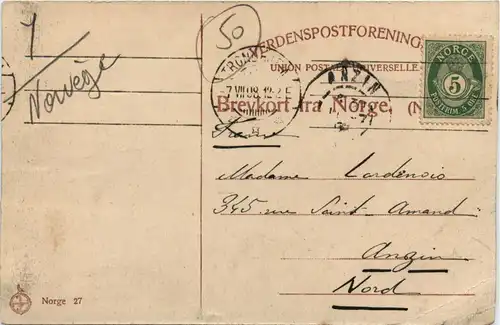 50
VERDENSPOSTFORENING
UNION POSTALE UNIVERSELLE
Brevkort fra Norge.
7 VII 08 12-
ANZIN
NORGE
5
POSTFRIM. 5 ØRE
Norvège
France
Madame
345 rue Saint Amand
Anzin
Nord
Norge 27